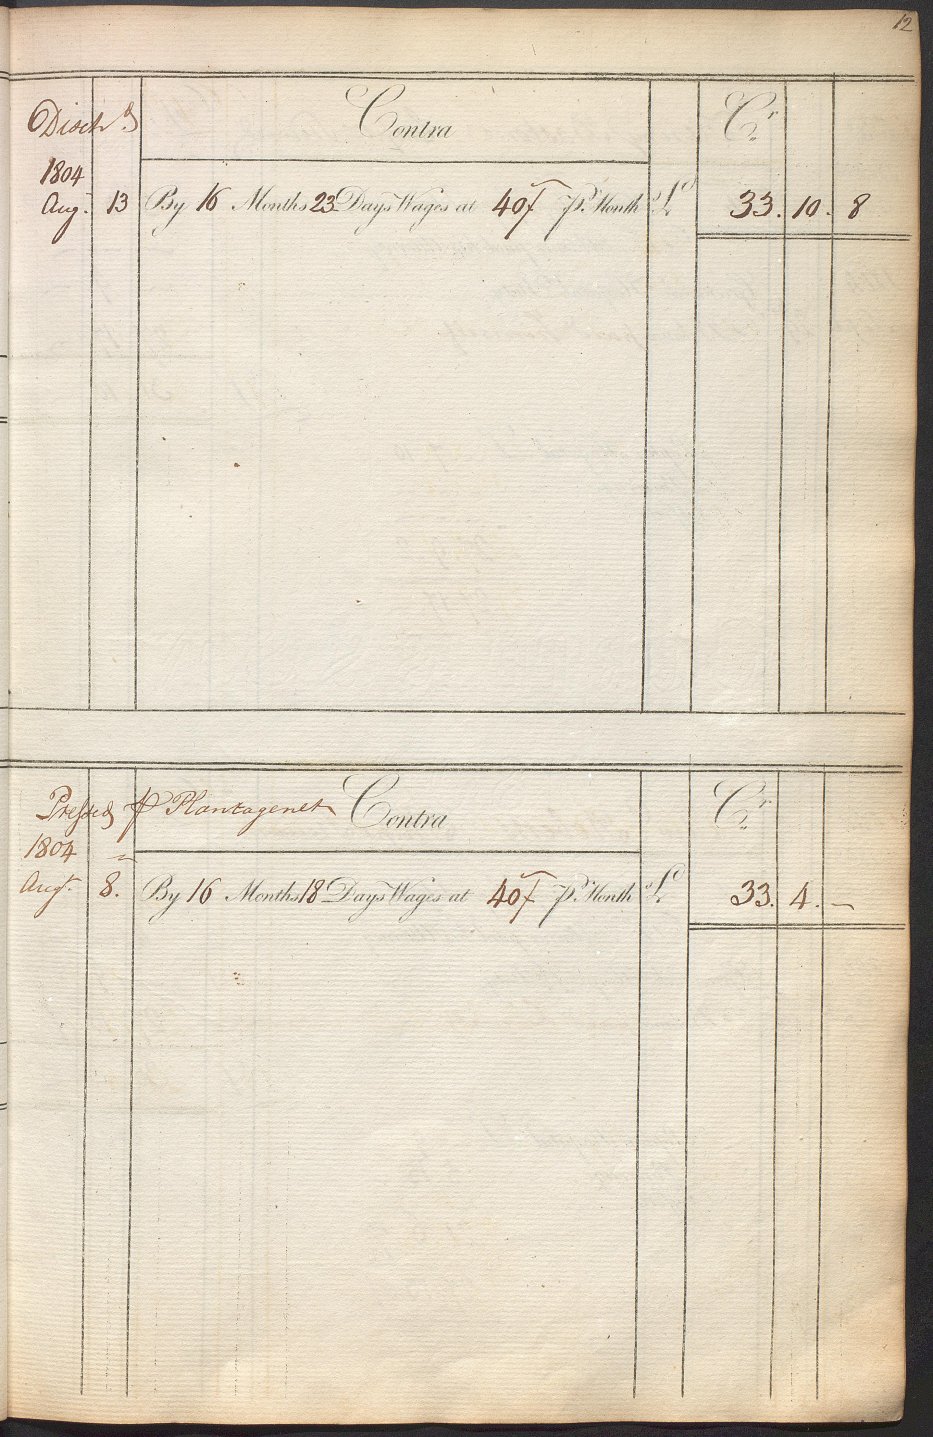 12
Disch.d Contra Cr.
1804
Aug.t 13 By 16 Months 23 Days Wages at 40/ p.r Month £ 33. 10. 8
Pressed p Plantagenet Contra Cr.
1804 "
Aug.t 8. By 16 Months 18 Days Wages at 40/ p.r Month £ 33. 4. —